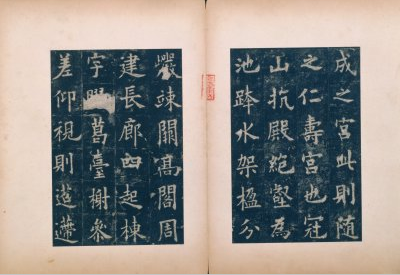 成之宮此則隨
之仁壽宮也冠
山抗殿絕壑為
池跨水架楹分
巖竦闕高閣周
建長廊四起棟
宇葛臺榭參
差仰視則迢遰